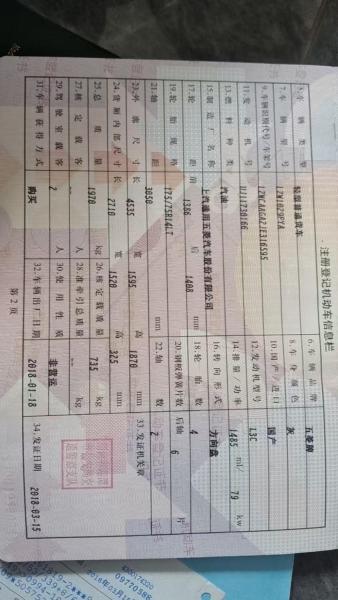 注册登记机动车信息栏
5.车辆类型 轻型普通货车 6.车辆品牌 五菱牌
7.车辆型号 LZW1029PYA 8.车身颜色 灰
9.车辆识别代号/车架号 LZWCAAGA2JE316595 10.国产/进口 国产
11.发动机号 UJ11730166 12.发动机型号 L3C
13.燃料种类 汽油 14.排量/功率 1485 ml/ 79 kw
15.制造厂名称 上汽通用五菱汽车股份有限公司 16.转向形式 方向盘
17.轮距 前 1386 后 1408 mm 18.轮胎数 4
19.轮胎规格 175/75R14LT 20.钢板弹簧片数 后轴 6 片
21.轴距 3050 mm 22.轴数 2
23.外廓尺寸 长 4535 宽 1595 高 1870 mm 33.发证机关章
24.货厢内部尺寸 长 2710 宽 1520 高 325 mm
25.总质量 1970 kg 26.核定载质量 735 kg
27.核定载客 人 28.准牵引总质量 kg
29.驾驶室载客 2 人 30.使用性质 非营运
31.车辆获得方式 购买 32.车辆出厂日期 2018-01-18 34.发证日期 2018-03-15
第2页